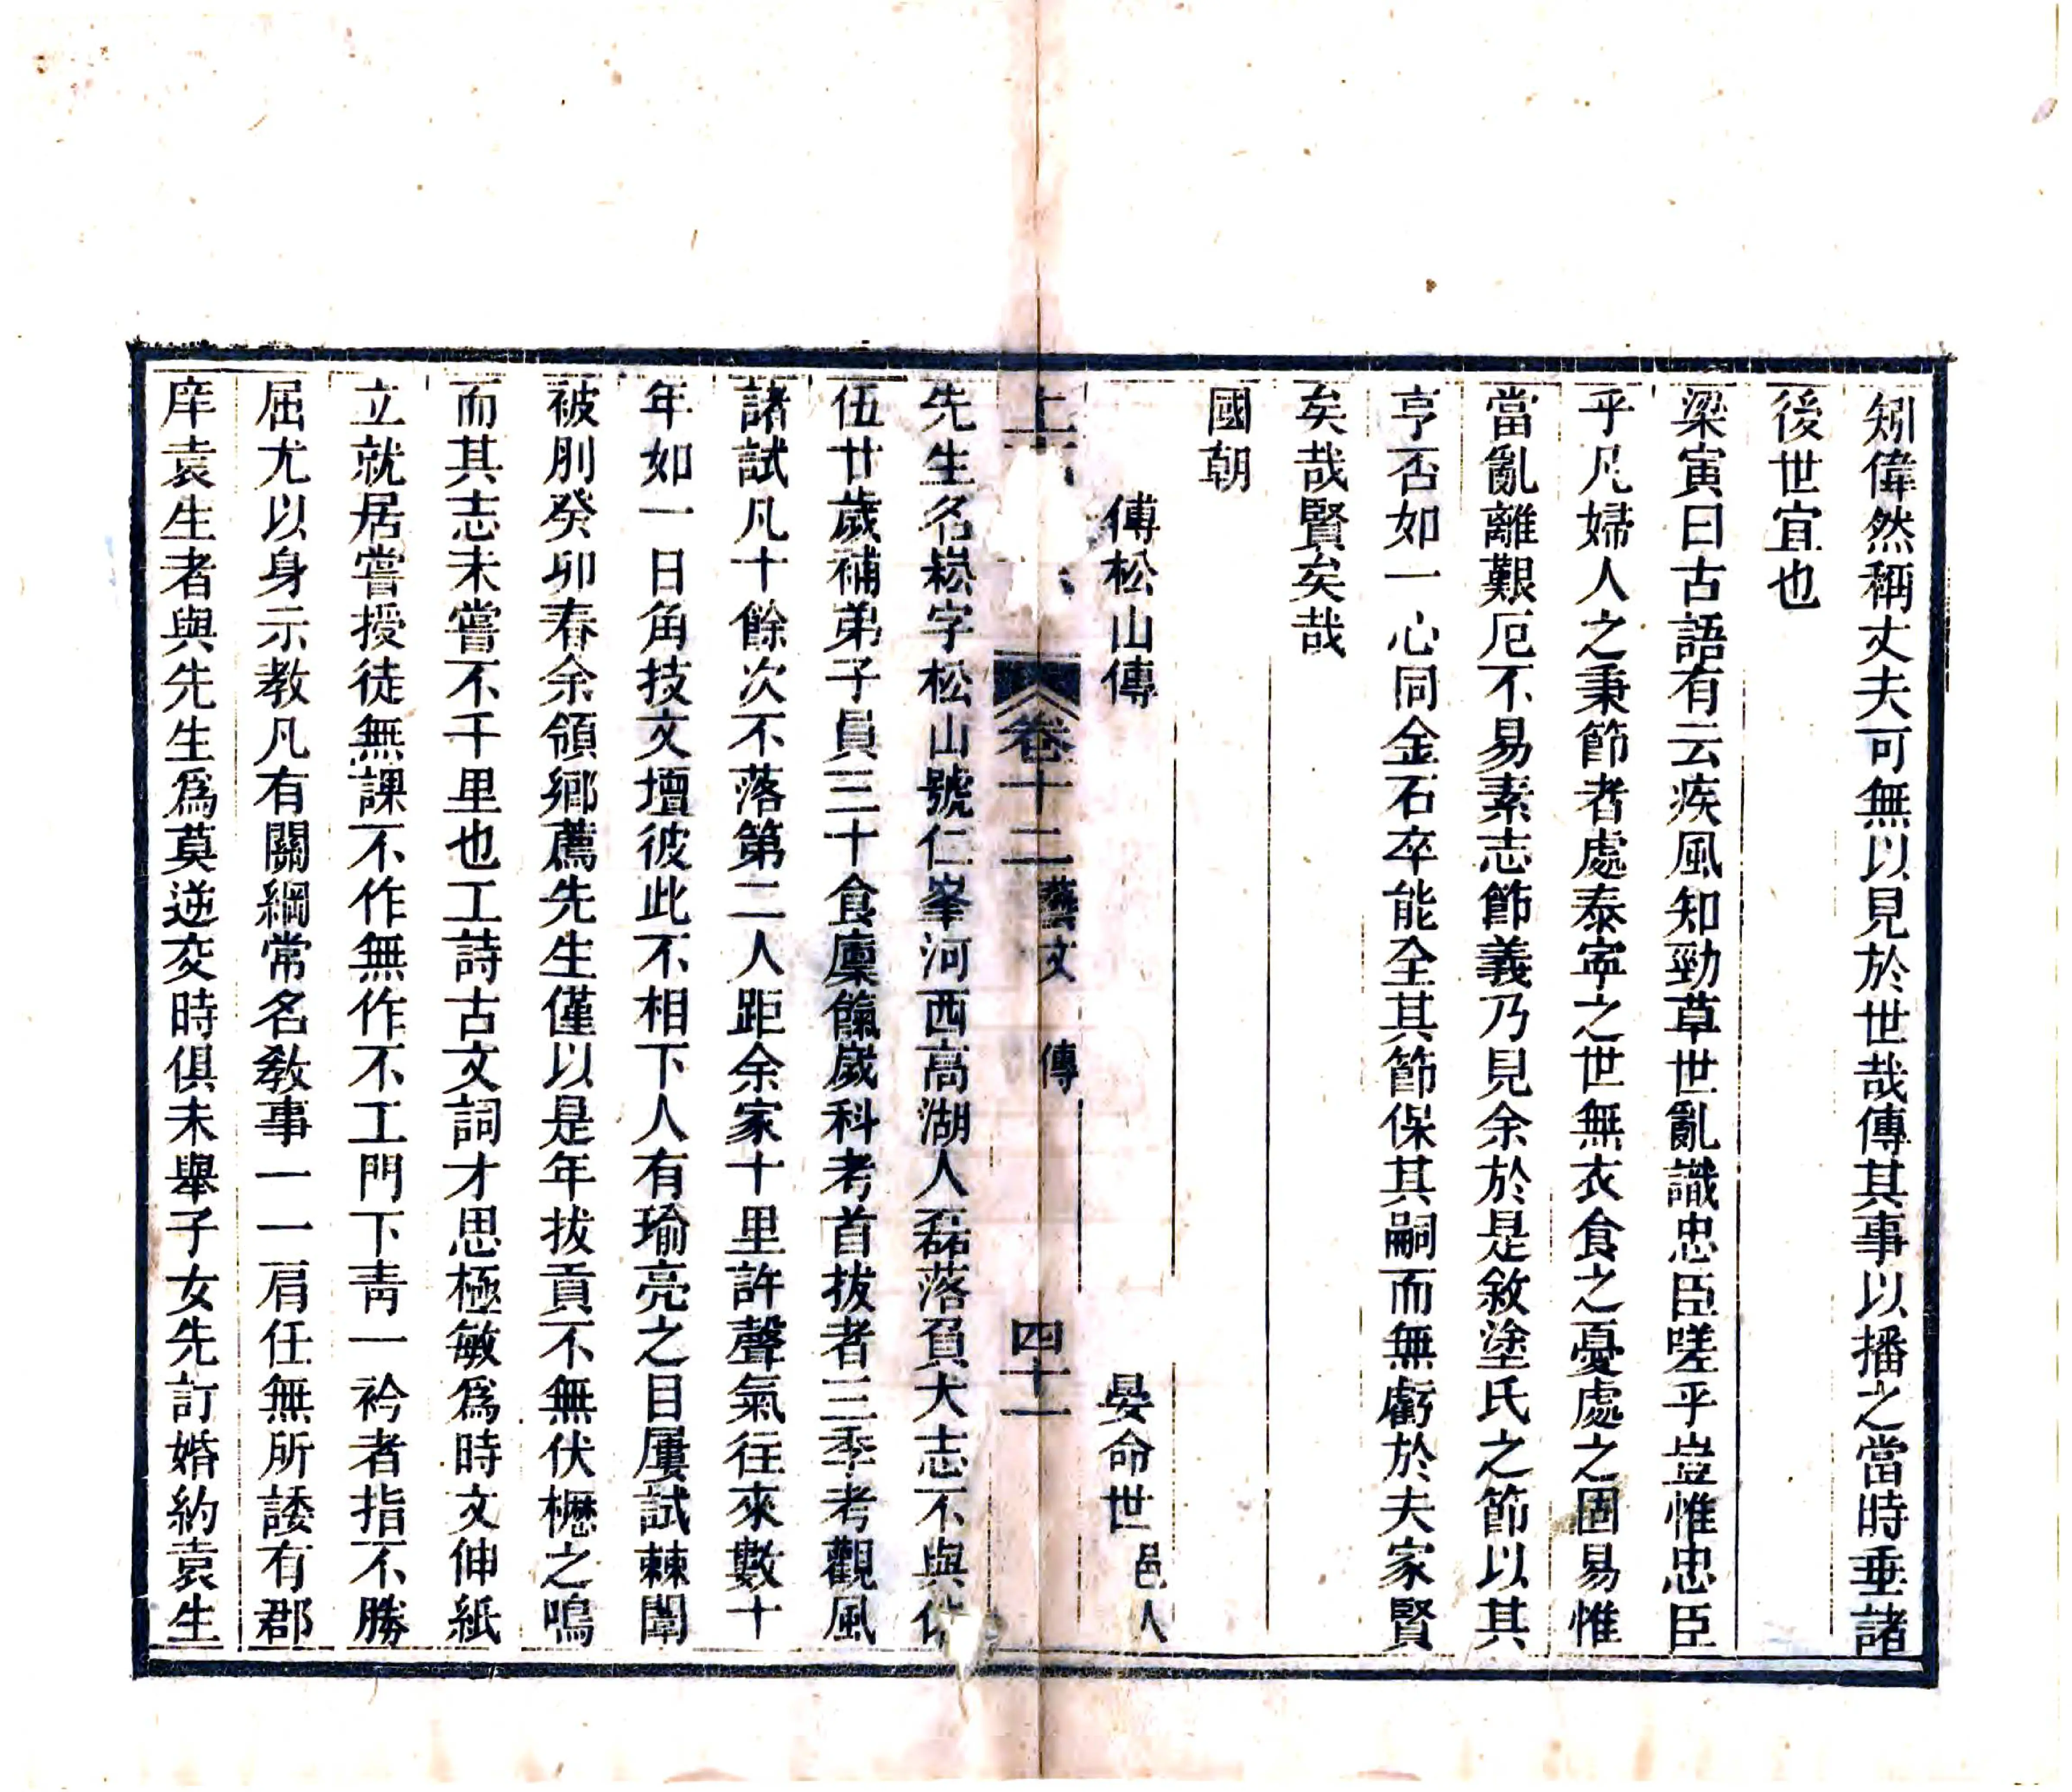 矧偉然稱丈夫可無以見於世哉傳其事以播之當時垂諸
後世宜也
梁寅曰古語有云疾風知勁草世亂識忠臣嗟乎豈惟忠臣
乎凡婦人之秉節者處泰寧之世無衣食之憂處之固易惟
當亂離艱厄不易素志節義乃見余於是敘塗氏之節以其
亨否如一心同金石卒能全其節保其嗣而無虧於夫家賢
矣哉賢矣哉
國朝
傅松山傳 晏命世 邑人
上 卷十二 藝文 傳 四十一
先生名崧字松山號仁峯河西高湖人磊落負大志不與
伍廿歲補弟子員三十食廩餼歲科考首拔者三季考觀風
諸試凡十餘次不落第二人距余家十里許聲氣往來數十
年如一日角技文壇彼此不相下人有瑜亮之目屢試棘闈
被刖癸卯春余領鄉薦先生僅以是年拔貢不無伏櫪之鳴
而其志未嘗不千里也工詩古文詞才思極敏爲時文伸紙
立就居嘗授徒無課不作無作不工門下青一衿者指不勝
屈尤以身示教凡有關綱常名教事一一肩任無所諉有郡
庠袁生者與先生爲莫逆交時俱未舉子女先訂婚約袁生